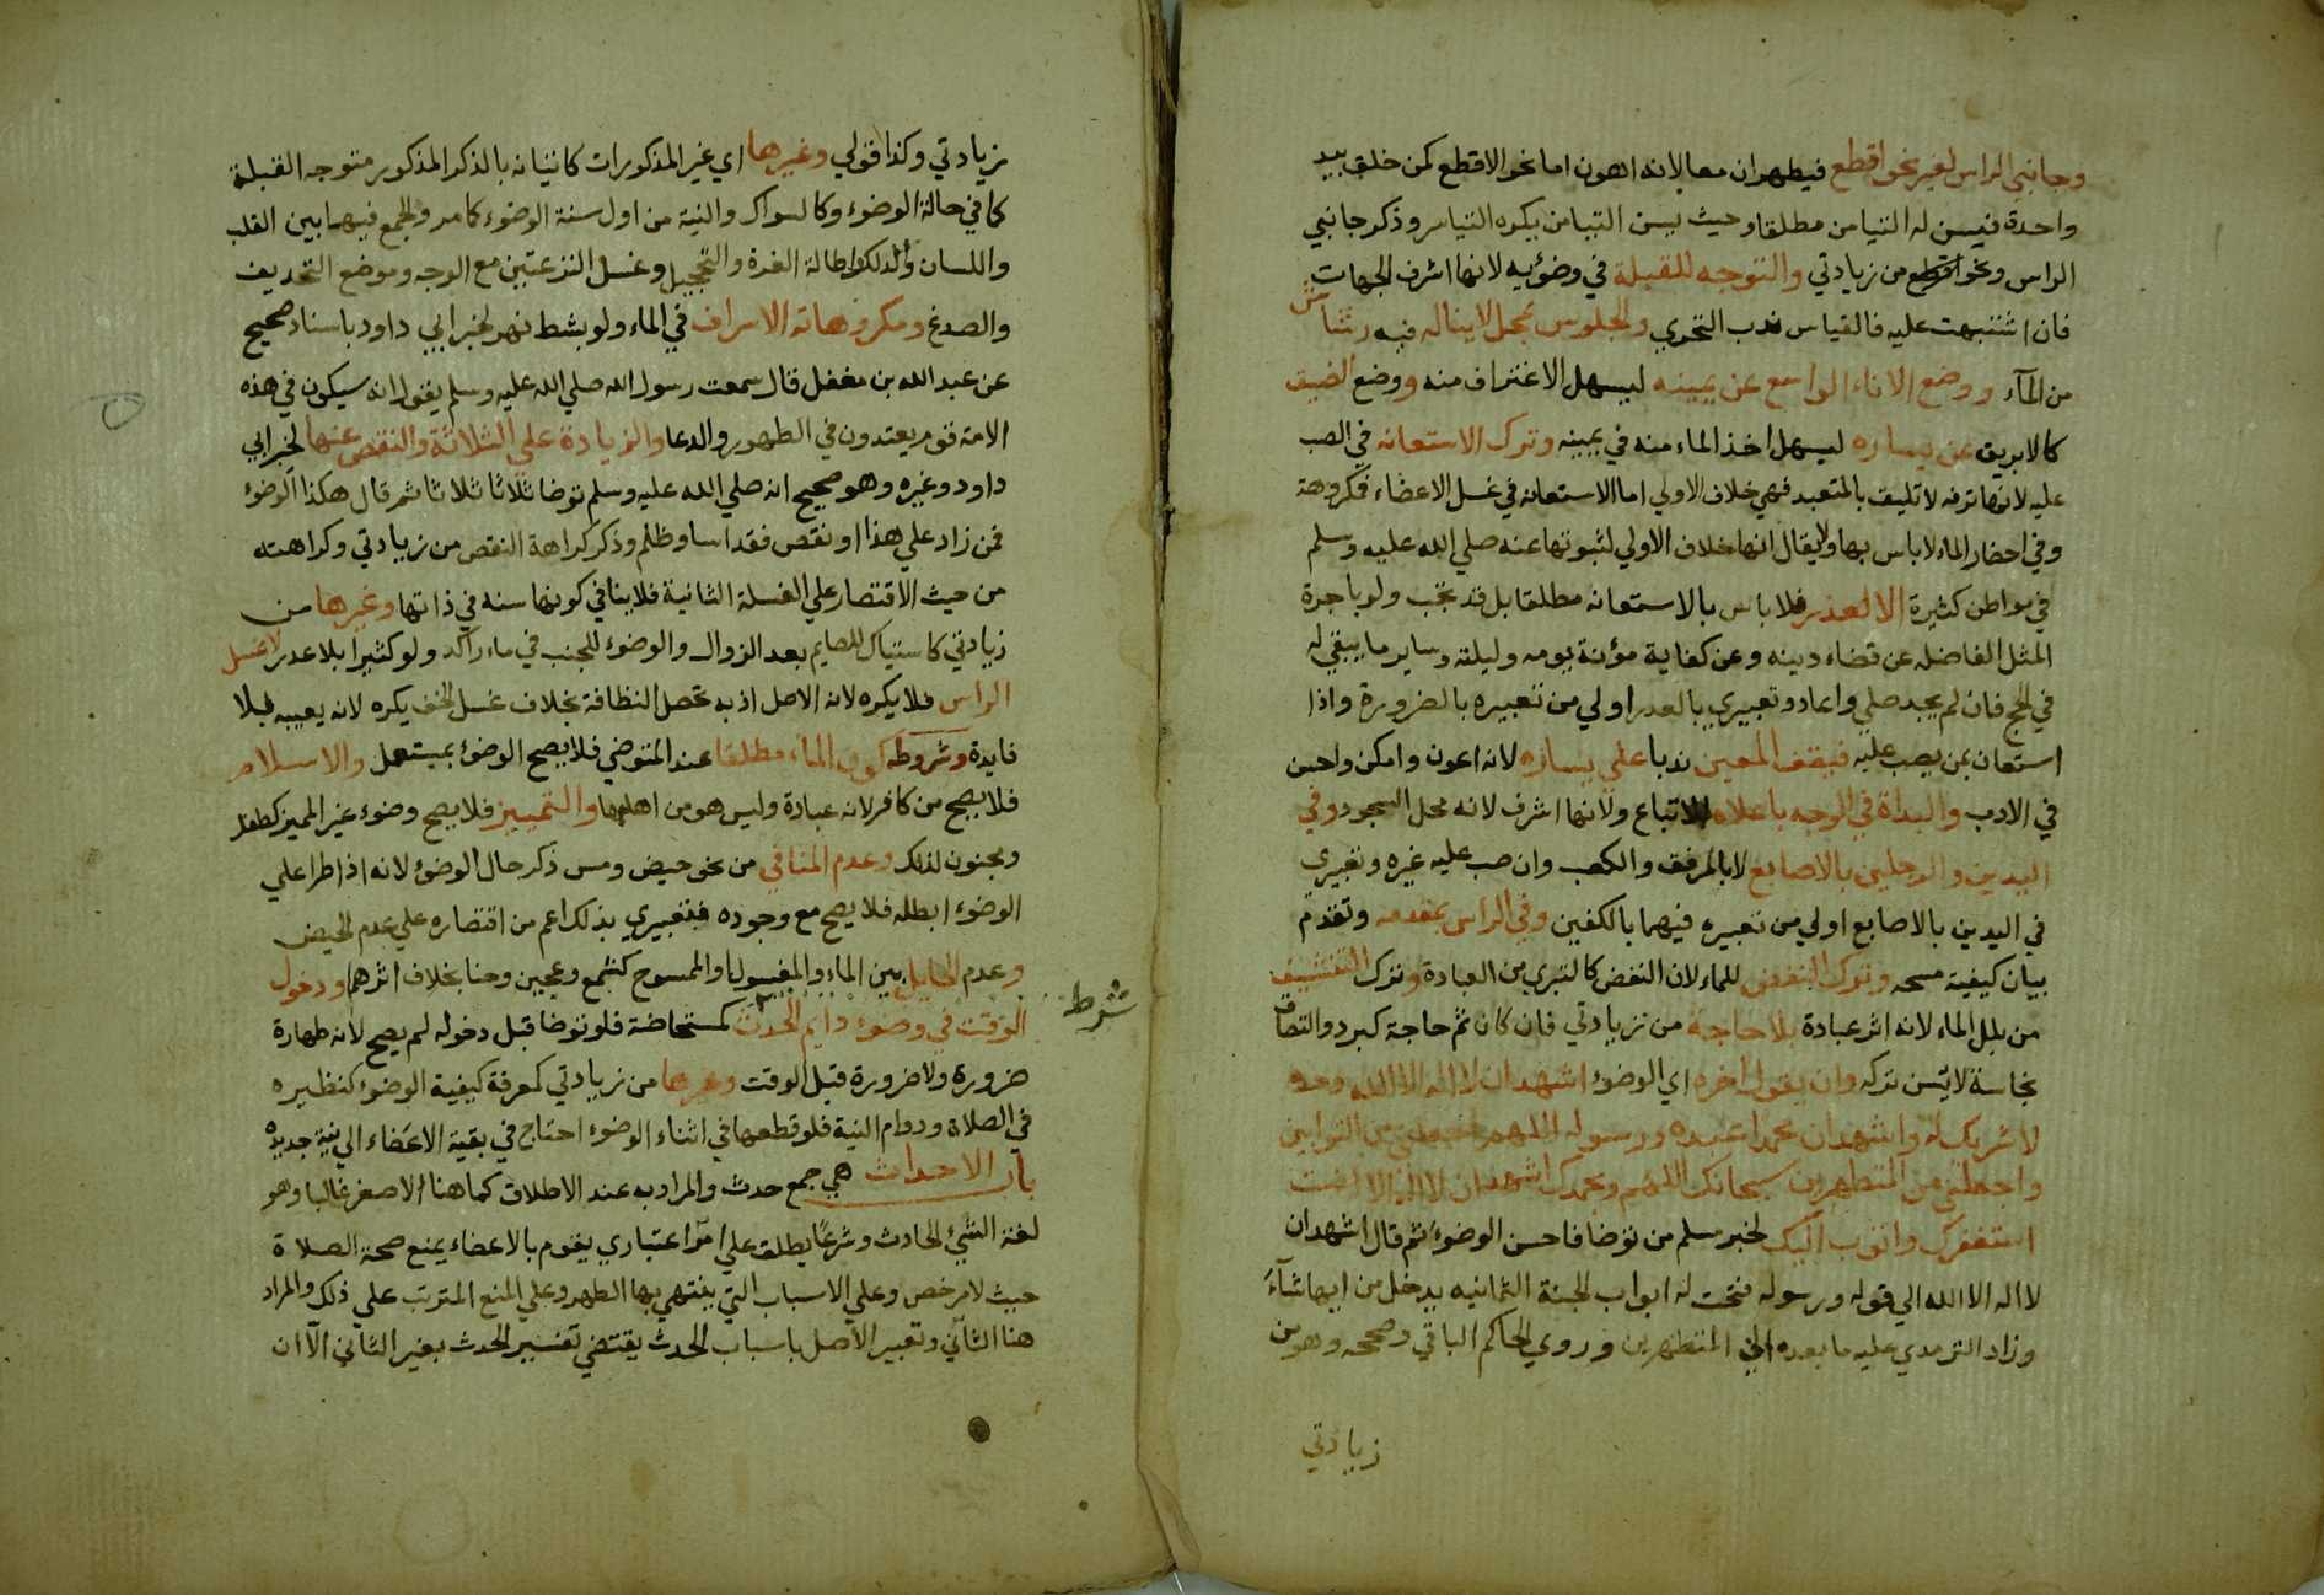 وجانبي الراس لغير نحو اقطع فيطهران معا لانه اهون اما نحو الاقطع كمن خلق بيد
واحدة فيسن له التيامن مطلقا وحيث يسن التيامن يكره التياسر وذكر جانبي
الراس ونحو اقطع من زيادتي والتوجه للقبلة في وضوئه لانها اشرف الجهات
فان اشتبهت عليه فالقياس ندب التحري والجلوس بمحل لا يناله فيه رشاش
من المآء ووضع الاناء الواسع عن يمينه ليسهل الاغتراف منه ووضع الضيق
كالابريق عن يساره ليسهل اخذ الماء منه في يمينه وترك الاستعانه في الصب
عليه لانها ترفه لا تليق بالمتعبد فهي خلاف الاولي اما الاستعانه في غسل الاعضاء فمكروهة
وفي احضار الماء لا باس بها ولا يقال انها خلاف الاولي لثبوتها عنه صلي الله عليه وسلم
في مواطن كثيرة الا لعذر فلا باس بالاستعانه مطلقا بل قد تجب ولو باجرة
المثل الفاضله عن قضاء دينه وعن كفاية مؤنة يومه وليلته وساير ما يبقي له
في الحج فان لم يجد صلي واعاد وتعبيري بالعذر اولي من تعبيره بالضرورة واذا
استعان بمن يصب عليه فيقف المعين ندبا علي يساره لانه اعون وامكن واحسن
في الادب والبداة في الوجه باعلاه للاتباع ولانها اشرف لانه محل السجود وفي
اليدين والرجلين بالاصابع لا بالمرفق والكعب وان صب عليه غيره وتعبيري
في اليدين بالاصابع اولي من تعبيره فيهما بالكفين وفي الراس بمقدمه وتقدم
بيان كيفية مسحه وترك النفض للماء لان النفض كالتبري من العبادة وترك التنشيف
من بلل الماء لانه اثر عبادة بلا حاجة من زيادتي فان كان ثم حاجة كبرد والتصاق
نجاسة لا يسن تركه وان يقول اخره اي الوضوء اشهد ان لا اله الا الله وحده
لا شريك له واشهد ان محمدا عبده ورسوله اللهم اجعلني من التوابين
واجعلني من المتطهرين سبحانك اللهم وبحمدك اشهد ان لا اله الا انت
استغفرك واتوب اليك لخبر مسلم من توضا فاحسن الوضوء ثم قال اشهد ان
لا اله الا الله الي قوله ورسوله فتحت له ابواب الجنة الثمانيه يدخل من ايها شآء
وزاد الترمدي عليه ما بعده الي المتطهرين وروي الحاكم الباقي وصححه وهو من
زيادتي
زيادتي وكذا قولي وغيرها اي غير المذكورات كاتيانه بالذكر المذكور متوجه القبلة
كما في حالة الوضوء وكالسواك والنية من اول سنة الوضوء كما مر والجمع فيها بين القلب
واللسان والدلك واطالة الغرة والتحجيل وغسل النزعتين مع الوجه وموضع التحديف
والصدغ ومكروهاته الاسراف في الماء ولو بشط نهر لخبر ابي داود باسناد صحيح
عن عبد الله بن مغفل قال سمعت رسول الله صلي الله عليه وسلم يقول انه سيكون في هذه
الامة قوم يعتدون في الطهور والدعا والزيادة علي الثلاثة والنقص عنها لخبر ابي
داود وغيره وهو صحيح انه صلي الله عليه وسلم توضا ثلاثا ثلاثا ثم قال هكذا الوضوء
فمن زاد علي هذا او نقص فقد اسا وظلم وذكر كراهة النقص من زيادتي وكراهته
من حيث الاقتصار علي الغسلة الثانية فلا ينافي كونها سنه في ذاتها وغيرها من
زيادتي كاستياك للصايم بعد الزوال والوضوء للجنب في ماء راكد ولو كثيرا بلا عدر لا غسل
الراس فلا يكره لانه الاصل اذ به تحصل النظافة بخلاف غسل الخف يكره لانه يعيبه بلا
فايدة وشروطه كون الماء مطلقا عند المتوضي فلا يصح الوضوء بمستعمل والاسلام
فلا يصح من كافر لانه عبادة وليس هو من اهلها والتمييز فلا يصح وضوء غير المميز كطفل
ومجنون لذلك وعدم المنافي من نحو حيض ومس ذكر حال الوضوء لانه اذا طرا علي
الوضوء ابطله فلا يصح مع وجوده فتعبيري بذلك اعم من اقتصاره علي عدم الحيض
وعدم الحايل بين الماء والمغسول والممسوح كشمع وعجين وحنا بخلاف اثرهما ودخول
شرط
الوقت في وضوء دايم الحدث كمستحاضة فلو توضا قبل دخوله لم يصح لانه طهارة
ضرورة ولا ضرورة قبل الوقت وغيرها من زيادتي كمعرفة كيفية الوضوء كنظيره
في الصلاة ودوام النية فلو قطعها في اثناء الوضوء احتاج في بقية الاعضاء الي نية جديده
باب الاحداث هي جمع حدث والمراد به عند الاطلاق كما هنا الاصغر غالبا وهو
لغة الشيء الحادث وشرعا يطلق علي امر اعتباري يقوم بالاعضاء يمنع صحة الصلاة
حيث لا مرخص وعلي الاسباب التي ينتهي بها الطهر وعلي المنع المترتب علي ذلك والمراد
هنا الثاني وتعبير الاصل باسباب الحدث يقتضي تفسير الحدث بغير الثاني الا ان